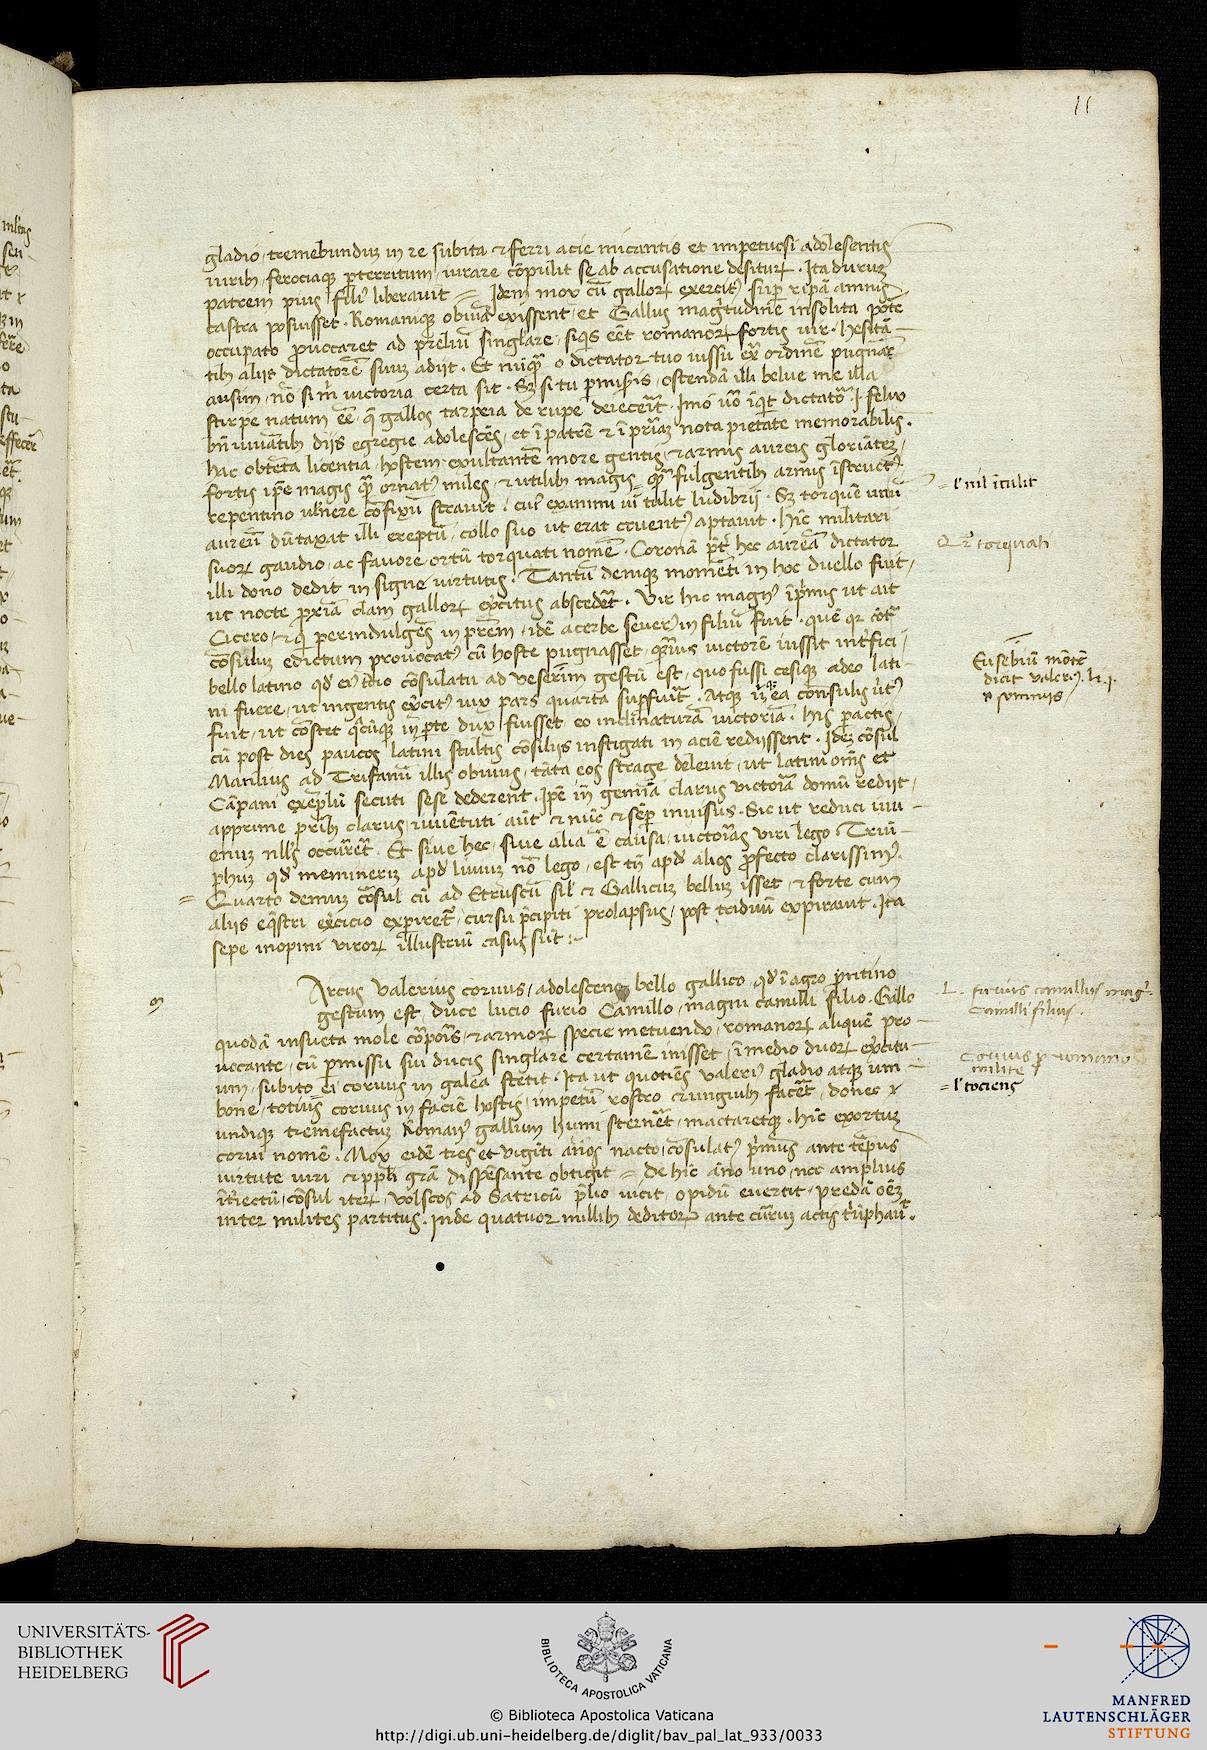 11
gladio, tremebundum in re subita & ferri acie micantis et impetuosi adolesentis
uirib, ferociaq; pterritum, iurare cõpulit se ab accusatione desiturꝝ. Ita durum
patrem pius fili⁹ liberauit = Idem mox cũ gallorꝝ exercit⁹ sup ripã amnis
castra posuisset. Romaniq; obuiã exissent, et Gallus magĩtudine insolita põte
occupato prouocaret ad preliũ singlare, siq̇s eẽt romanorꝝ fortis uir. hesitã-
tib aliis dictatorẽ suuz adijt. Et nũq̃ o dictator tuo iussu ext ordinẽ pugnãr
ausim, nõ si m̃ uictoria certa sit. Sz si tu pmis̃is, ostendã illi belue me illa
stirpe natum eẽ, q̃ gallos tarpeia de rupe deiecerĩt. Imõ uõ iq̇t dictator, I felix
bñ iuuãtib diis egregie adolescẽs, et i patrẽ & i priãz nota pietate memorabilis.
hac obtẽta licentia, hostem exultantẽ more gentis, & armis aureis gloriãtez,
fortis ipe magis q̃ ornat⁹ miles, & utilib magis q̃ fulgentib armis istruct⁹,
repentino ulnere cõfixũ strauit, cui⁹ exanimi ui tulit ludibrij. Sz torquẽ unũ
aureũ dũtaxat illi ereptũ, collo suo ut erat cruent⁹ aptauit. hĩc militari
suorꝝ gaudio, ac fauore ortũ torquati nomẽ. Coronã pt hec aureã dictator
illi dono dedit in signe uirtutis. Tantũ deniq; momẽti in hoc duello fuit,
ut nocte pxiã clam gallorꝝ exercitus abscedẽt. Vir hic magn⁹ ĩpmis ut ait
Cicero, & q̇ perindulgẽs in prẽm, idẽ acerbe seuer⁹ in filiũ fuit. quẽ qr cõt
cõsulum edictum prouocat⁹ cũ hoste pugnasset, q̃uis uictorẽ iussit intfici,
bello latino qd ei⁹ tertio cõsulatu ad ueserim gestũ est, quo fussi cesiq; adeo lati-
ni fuere, ut ingentis exercit⁹ uix pars quarta supfuĩt. Atq; ea consulis uirt⁹
fuit, ut cõstet q̇cũq; in pte dux fuisset eo inclinaturã uictoriã. his pactis,
cũ post dies paucos latini stultis cõsiliis instigati in aciẽ rediissent. Idez cõsul
Manlius ad Trifanũ illis obuius, tãta eos strage deleuit, ut latini om̃s et
Cãpani exeplũ secuti sese dederent. Ipẽ in gemiã clarus uictoria domũ redijt,
apprime prib clarus, iuuẽtuti aũt & nũc & sẽp inuisus. Sic ut reduci iuu-
enum nllus occurreĩt. Et siue hec, siue alia ẽ causa, uictorias uiri lego. Triũ-
phuz qd meminerim apd liuium nõ lego, est tñ apd alios pfecto clarissim⁹.
= Quarto demum cõsul cũ ad Etruscũ sil & Gallicuz bellum isset, & forte cum
aliis eq̃stri exercicio expiret, cursu pcipiti prolapsus, post triduũ expirauit. Ita
sepe inopini uirorꝝ illustriũ casus sũt :~
Arcus Valerius coruus, adolescens bello gallico qd i agro põtino
gestum est, duce lucio furio Camillo, magni camilli filio. Gallo
quodã insueta mole corporis, & armorꝝ specie metuendo, romanorꝝ aliquẽ pro-
uocante, cũ pmissu sui ducis singlare certamẽ inisset, i medio duorꝝ exercitu-
um, subito ei coruus in galea stetit. Ita ut quotiẽs ualeri⁹ gladio atq; um-
bone, totiũs coruus in faciẽ hostis, impetũ rostro & unguib facẽt, donec
undiq; tremefactuz Roman⁹ gallum humi sternẽt, mactaretq;. hĩc exortuz
corui nomẽ. Mox eidẽ tres et uigiti ãnos nacto, cõsulat⁹ pmus ante tẽpus
uirtute uiri & ppli grã dispẽsante obtigit = de hĩc ãno uno, nec amplius
ĩtiectũ, cõsul iterꝝ uolscos ad Satricũ plio uicit, opidũ euertit, predã oẽz
inter milites partitus. Inde quatuor millib deditorꝝ ante currum actis triuphauit.
= l' nil ĩtulit
Q r̃ torquati
Eusebiũ
dicit Valeri⁹ li. j.
L. furius camillus mag
Camilli filius.
Coruus p romano
milite
= l' tociens
UNIVERSITÄTS-
BIBLIOTHEK
HEIDELBERG
BIBLIOTHECA APOSTOLICA VATICANA
© Biblioteca Apostolica Vaticana
http://digi.ub.uni-heidelberg.de/diglit/bav_pal_lat_933/0033
MANFRED
LAUTENSCHLÄGER
STIFTUNG